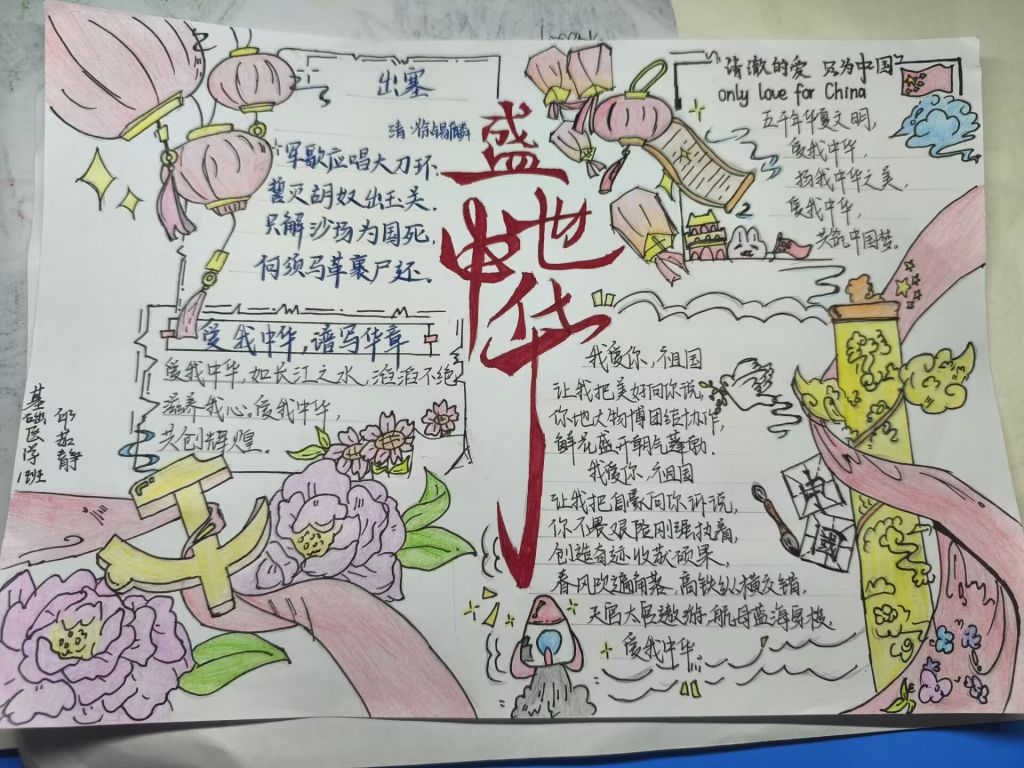 出塞
清·徐锡麟
军歌应唱大刀环,
誓灭胡奴出玉关.
只解沙场为国死,
何须马革裹尸还.
盛世
中华
清澈的爱 只为中国
only love for China
五千年华夏文明,
爱我中华,
扬我中华之美,
爱我中华,
共筑中国梦.
爱我中华,谱写华章
爱我中华,如长江之水,滔滔不绝
滋养我心。爱我中华,
共创辉煌.
基础医学
1班
邱茹静
我爱你,祖国
让我把美好向你说,
你地大物博团结协作,
鲜花盛开朝气蓬勃.
我爱你,祖国
让我把自豪向你诉说,
你不畏艰险刚强执着,
创造奇迹收获硕果,
春风吹遍角落,高铁纵横交错,
天宫太空遨游,航母蓝海穿梭.
爱我中华
中
國